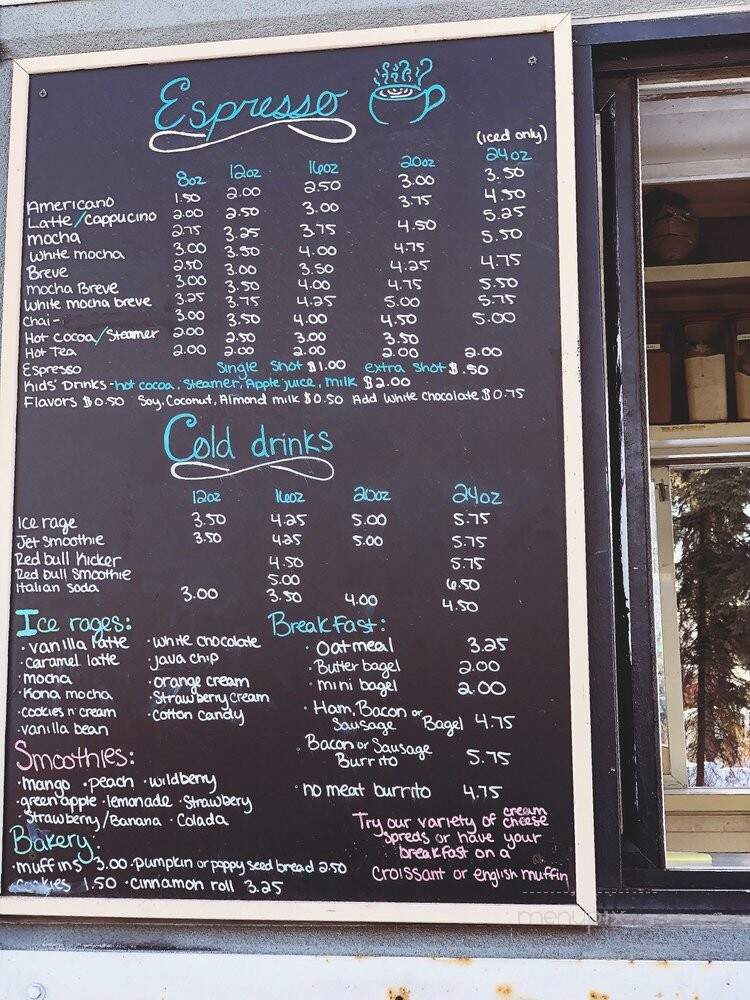 Espresso
(iced only)
8oz 12oz 16oz 20oz 24oz
Americano 1.50 2.00 2.50 3.00 3.50
Latte/cappucino 2.00 2.50 3.00 3.75 4.50
mocha 2.75 3.25 3.75 4.50 5.25
White mocha 3.00 3.50 4.00 4.75 5.50
Breve 2.50 3.00 3.50 4.25 4.75
mocha Breve 3.00 3.50 4.00 4.75 5.50
White mocha breve 3.25 3.75 4.25 5.00 5.75
Chai - 3.00 3.50 4.00 4.50 5.00
Hot cocoa/Steamer 2.00 2.50 3.00 3.50
Hot Tea 2.00 2.00 2.00 2.00 2.00
Espresso Single Shot $1.00 extra shot $.50
Kids' Drinks - hot cocoa, Steamer, Apple juice, milk $2.00
Flavors $0.50 Soy, Coconut, Almond milk $0.50 Add White Chocolate $0.75
Cold drinks
12oz 16oz 20oz 24oz
Ice rage 3.50 4.25 5.00 5.75
Jet Smoothie 3.50 4.25 5.00 5.75
Red bull Kicker 4.50 5.75
Red bull Smoothie 5.00 6.50
Italian soda 3.00 3.50 4.00 4.50
Ice rages:
· vanilla latte · white chocolate
· caramel latte · java chip
· mocha · orange cream
· Kona mocha · Strawberry cream
· cookies n' cream · cotton candy
· vanilla bean
Breakfast:
· Oatmeal 3.25
· Butter bagel 2.00
· mini bagel 2.00
· Ham, Bacon or
Sausage Bagel 4.75
· Bacon or Sausage
Burrito 5.75
· no meat burrito 4.75
Smoothies:
· mango · peach · wildberry
· green apple · lemonade · Strawbery
· Strawberry/Banana · Colada
Try our variety of cream cheese
spreds or have your
breakfast on a
croissant or english muffin
Bakery:
· muffins 3.00 · pumpkin or poppy seed bread 2.50
cookies 1.50 · cinnamon roll 3.25